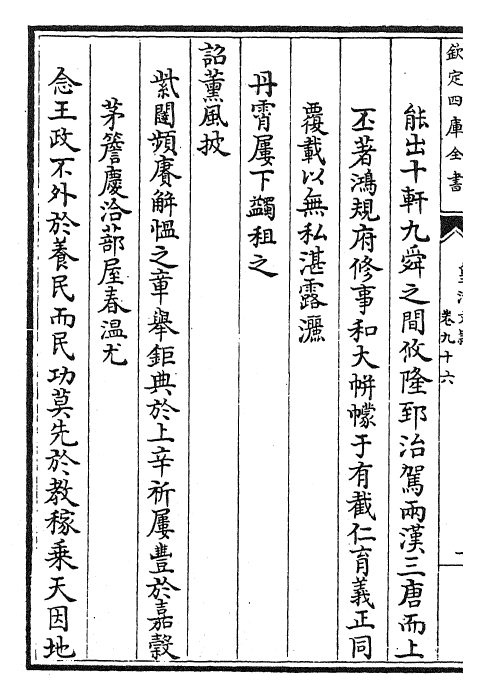 欽定四庫全書
卷九十六
能出十軒九舜之間攸隆郅治駕兩漢三唐而上
丕著鴻規府修事和大帡幪于有截仁育義正同
覆載以無私湛露灑
丹霄屢下蠲租之
詔薰風披
紫闥頻賡解慍之章舉鉅典於上辛祈屢豐於嘉穀
茅簷慶洽蔀屋春溫尤
念王政不外於養民而民功莫先於教稼乘天因地